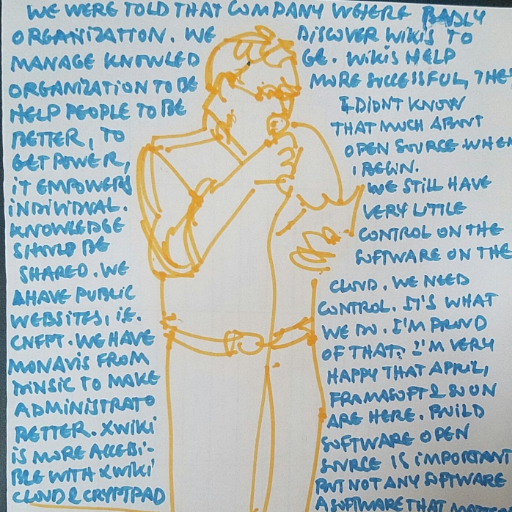 WE WERE TOLD THAT COMPANY WHERE BADLY
ORGANIZATION. WE DISCOVER WIKIS TO
MANAGE KNOWLEDGE. WIKIS HELP
ORGANIZATION TO BE MORE SUCCESSFUL, THE
HELP PEOPLE TO BE
BETTER, TO
GET POWER,
IT EMPOWERS
INDIVIDUAL.
KNOWLEDGE
SHOULD BE
SHARED. WE
HAVE PUBLIC
WEBSITES, IE.
CNFPT. WE HAVE
MONAVIS FROM
MINSIC TO MAKE
ADMINISTRATO
BETTER. XWIKI
IS MORE ACCEBI-
BLE WITH XWIKI
CLOUD & CRYPTPAD
I DIDNT KNOW
THAT MUCH ABOUT
OPEN SOURCE WHEN
I BEGIN.
WE STILL HAVE
VERY LITTLE
CONTROL ON THE
SOFTWARE ON THE
CLOUD. WE NEED
CONTROL. IT'S WHAT
WE DO. I'M PROUD
OF THAT. I'M VERY
HAPPY THAT APRIL,
FRAMASOFT & SO ON
ARE HERE. BUILD
SOFTWARE OPEN
SOURCE IS IMPORTANT
BUT NOT ANY SOFTWARE
A SOFTWARE THAT MATTERS